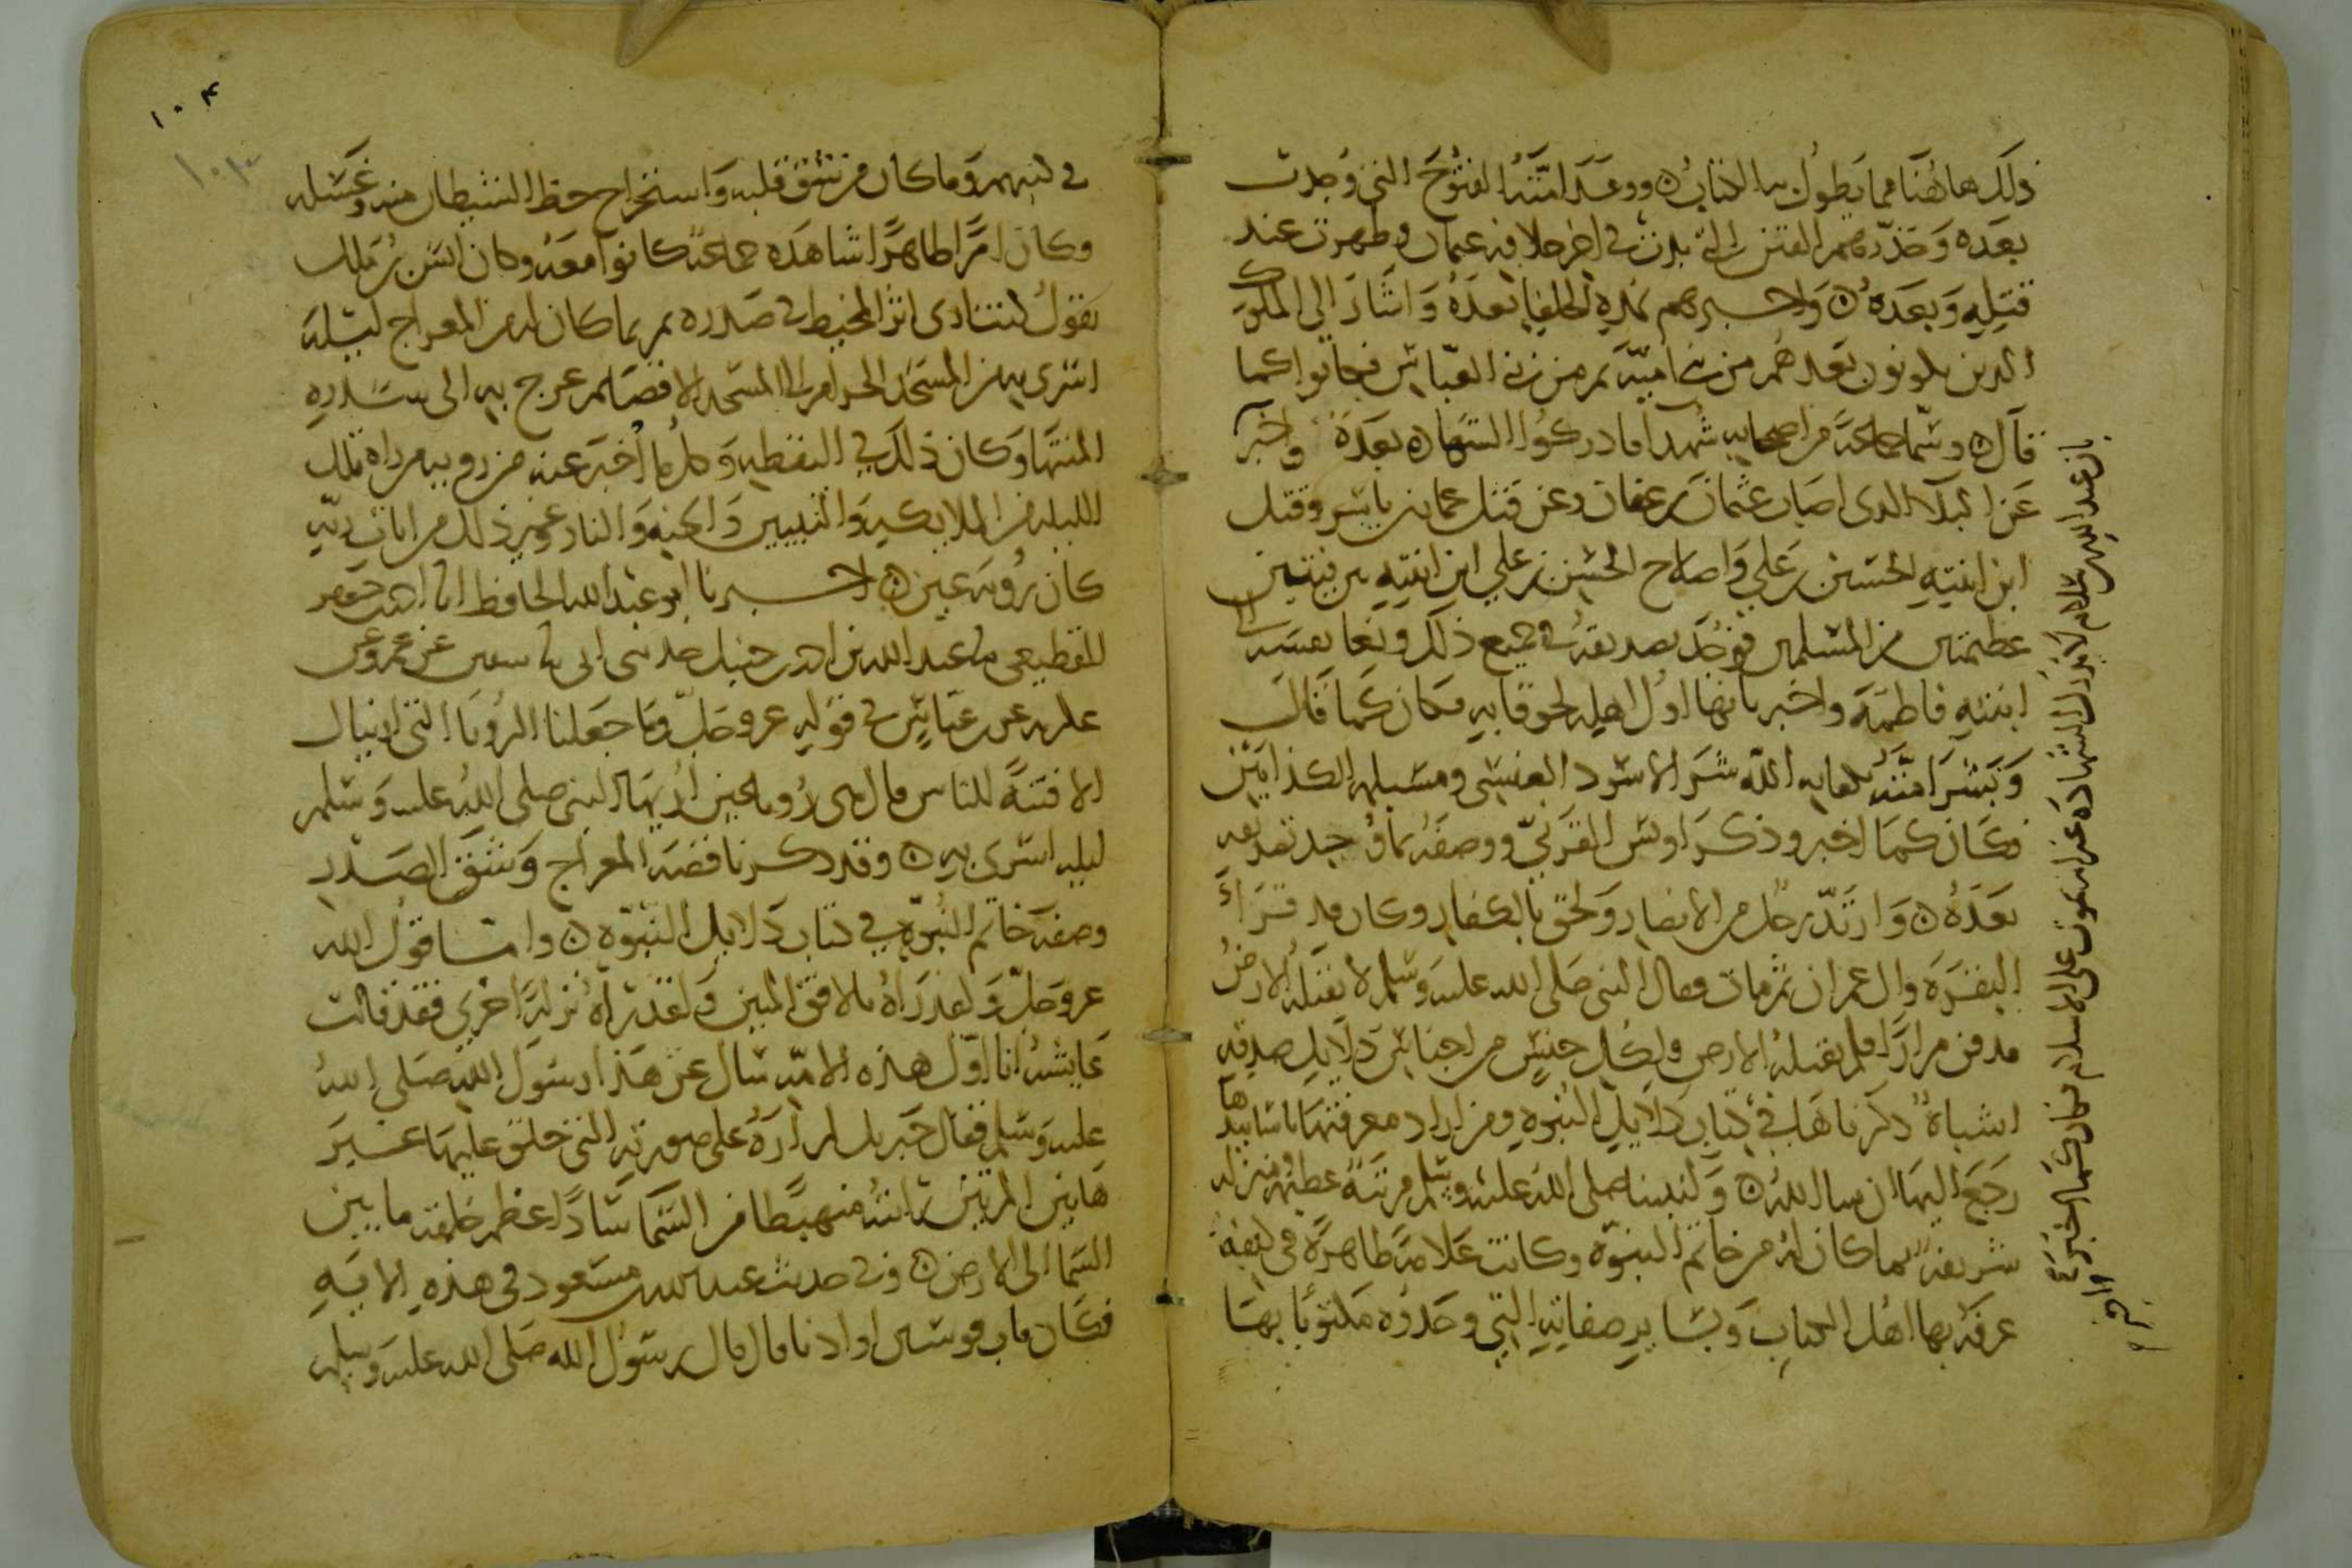 ذلك هاهنا مما يطول به الكتاب ووعد امته الفتوح التي وجدت
بعده وحذرهم الفتن التي بدت في اخر خلافة عثمان وظهرت عند
قتله وبعده واخبرهم بمدة الخلفا بعده واشار الى الملوك
الذين يكونون بعدهم من بني امية ثم من بني العباس فجاوا كما
قال وسمى جماعة من اصحابه شهدا فادركوا الشهادة بعده واخبر
عن البلا الذي اصاب عثمان بن عفان وعن قتل عمار بن ياسر وقتل
ابن ابنته الحسين بن علي واصلاح الحسن بن علي ابن ابنته بين فيتين
عظيمتين من المسلمين فوجد تصديقه في جميع ذلك ونعا نفسه الى
ابنته فاطمة واخبر بانها اول اهله لحوقا به فكان كما قال
وبشر امته بكفاية الله شر الاسود العنسي ومسيلمة الكذابين
فكان كما اخبر وذكر اويس القرني ووصفه بما وجد تصديقه
بعده وارتد رجل من الانصار ولحق بالكفار وكان قد قرا
البقرة وال عمران ثم مات فقال النبي صلى الله عليه وسلم لا تقبله الارض
فدفن مرارا فلم تقبله الارض ولكل جنس من اجناس دلايل صدقه
اشباه ذكرناها في كتاب دلايل النبوة ومن اراد معرفتها باسانيدها
رجع اليها ان شا الله ولنبينا صلى الله عليه وسلم مرتبة عظيمة ومنزلة
شريفة بما كان له من خاتم النبوة وكانت علامة ظاهرة في كتفه
عرفه بها اهل الكتاب وبساير صفاته التي وجدوه مكتوبا بها
بان عبد الله بن سلام لا يدرك الشهادة غير انه يموت على الاسلام فكان كما اخبر
١٠٤
١٠٣
في كتبهم وما كان من شق قلبه واستخراج حظ الشيطان منه وغسله
وكان امرا ظاهرا شاهده جماعة كانوا معه وكان انس بن مالك
يقول كنت ارى اثر المخيط في صدره ثم بما كان له من المعراج ليلة
اسري به من المسجد الحرام الى المسجد الاقصا ثم عرج به الى سدرة
المنتها وكان ذلك في اليقظة وكل ما اخبر عنه من رويته من راه تلك
الليلة من الملايكة والنبيين والجنة والنار وغير ذلك من ايات ربه
كان روية عين اخبرنا ابو عبد الله الحافظ انا احمد بن جعفر
القطيعي نا عبد الله بن احمد بن حنبل حدثني ابي نا سفين عن عمرو عن
عكرمة عن ابن عباس في قوله عز وجل وما جعلنا الرويا التي اريناك
الا فتنة للناس قال هي رويا عين اريها النبي صلى الله عليه وسلم
ليلة اسري به وقد ذكرنا قصة المعراج وشق الصدر
وصفة خاتم النبوة في كتاب دلايل النبوة واما قول الله
عز وجل ولقد راه بالافق المبين ولقد راه نزلة اخرى فقد قالت
عايشة انا اول هذه الامة سال عن هذا رسول الله صلى الله
عليه وسلم فقال جبريل لم اره على صورته التي خلق عليها غير
هاتين المرتين رايته منهبطا من السما سادا عظم خلقه ما بين
السما الى الارض وفي حديث عبد الله بن مسعود في هذه الاية
فكان قاب قوسين او ادنا قال قال رسول الله صلى الله عليه وسلم